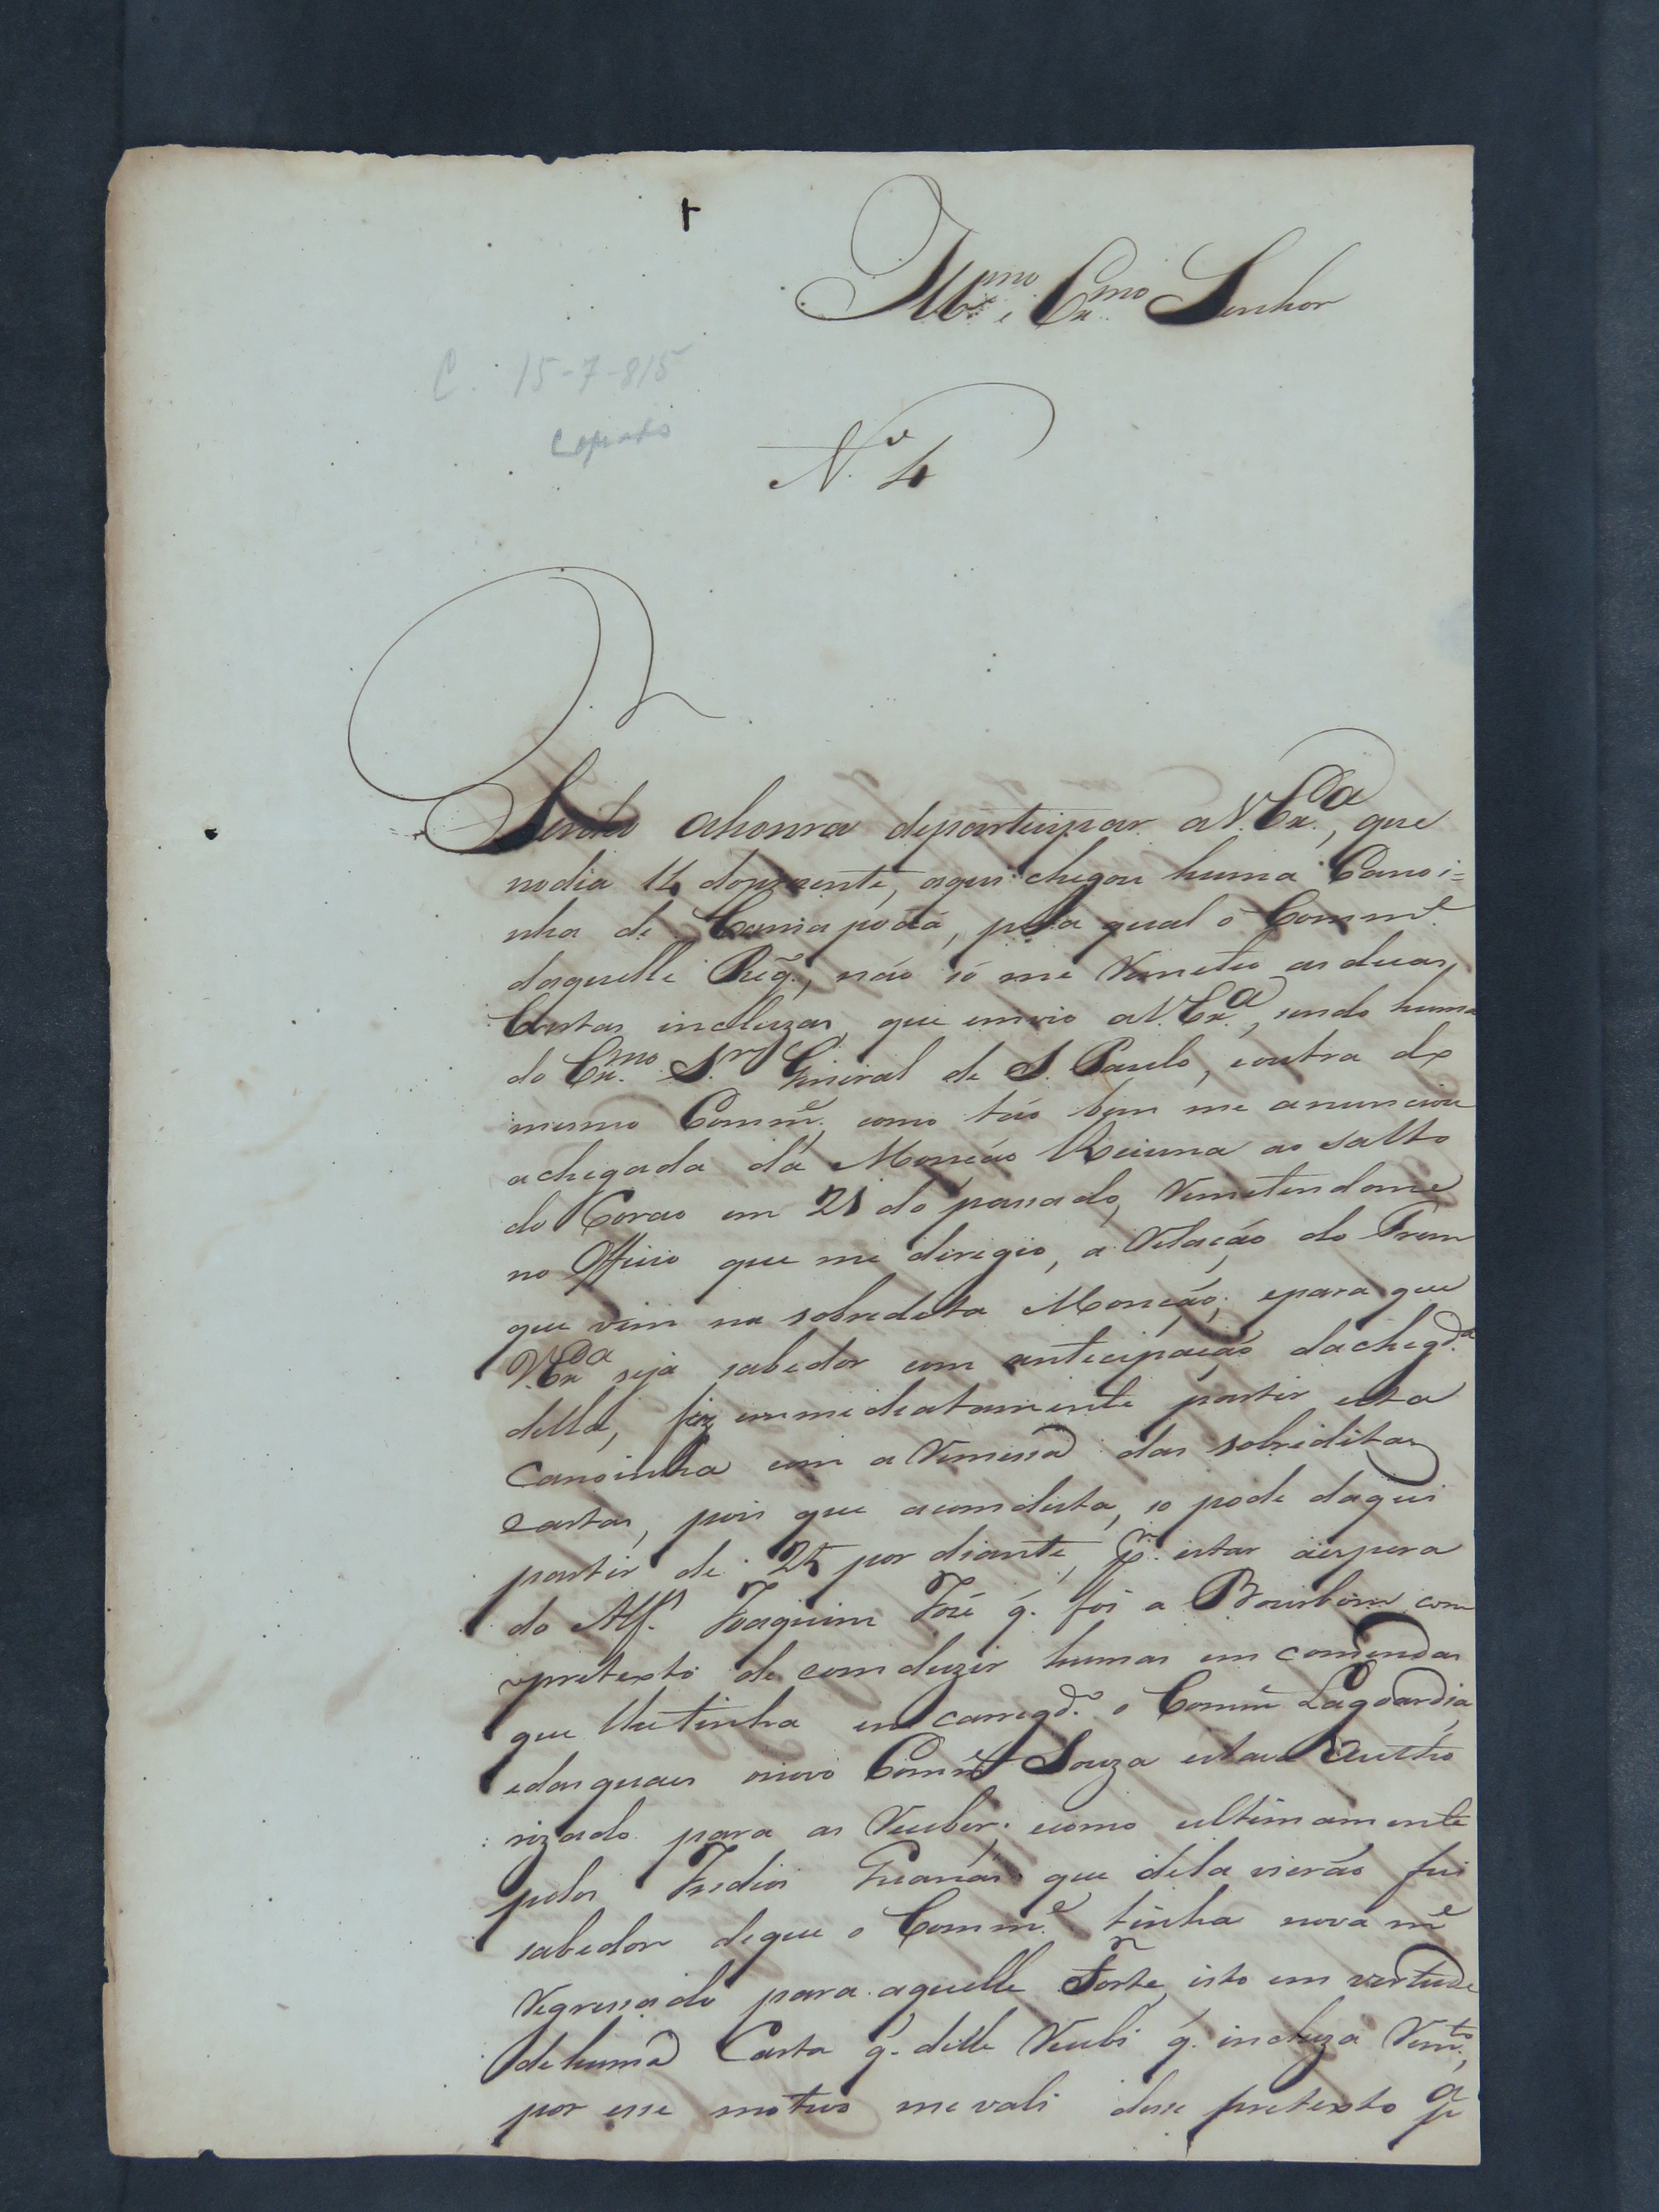 Illmo. e Exmo. Senhor
C. 15-7-815
Copiado
No. 4
Tenho ahonra departicipar aV.Exa., que
nodia 14 docorrente, aqui chegou huma Canoi=
nha de Camapoãa, pela qual o Comme.
daquelle Reg., não só me Remeteo as duas
Cartas incluzas, que envio aV.Exa., sendo huma
do Exmo. Sr. General de S. Paulo, eoutra do
mesmo Comme. como tão bem me anunciou
achegada da Monção Reiuna ao salto
do Corao em 21 do passado, Remetendome
no Officio que me dirigio, a Relação do Trem
que vem na sobredita Monção; epara que
V.Exa seja sabedor com antecipação dachegda.
della, fiz immediatamente partir esta
Canoinha com a Remessa das sobreditas
cartas, pois que acomdusta, so pode daqui
partir de 25 por diante, pr. estar aespera
do Alfs. Joaquim José q. foi a Bourbom com
opretexto de comduzir humas emcomendas
que lhe tinha emcarregdo. o Comme Lagoardia,
edasquaes onovo Comme Souza estava Autho
rizado para as Receber; ecomo ultimamente
pelos Indios Guanás que dela vierão fui
sabedor deque o Comme. tinha novamte
Regressado para aquelle Forte, isto em vertude
dehuma Carta q. delle Recebi q. incluza Remto.,
por esse motivo mevali desse pretexto pa